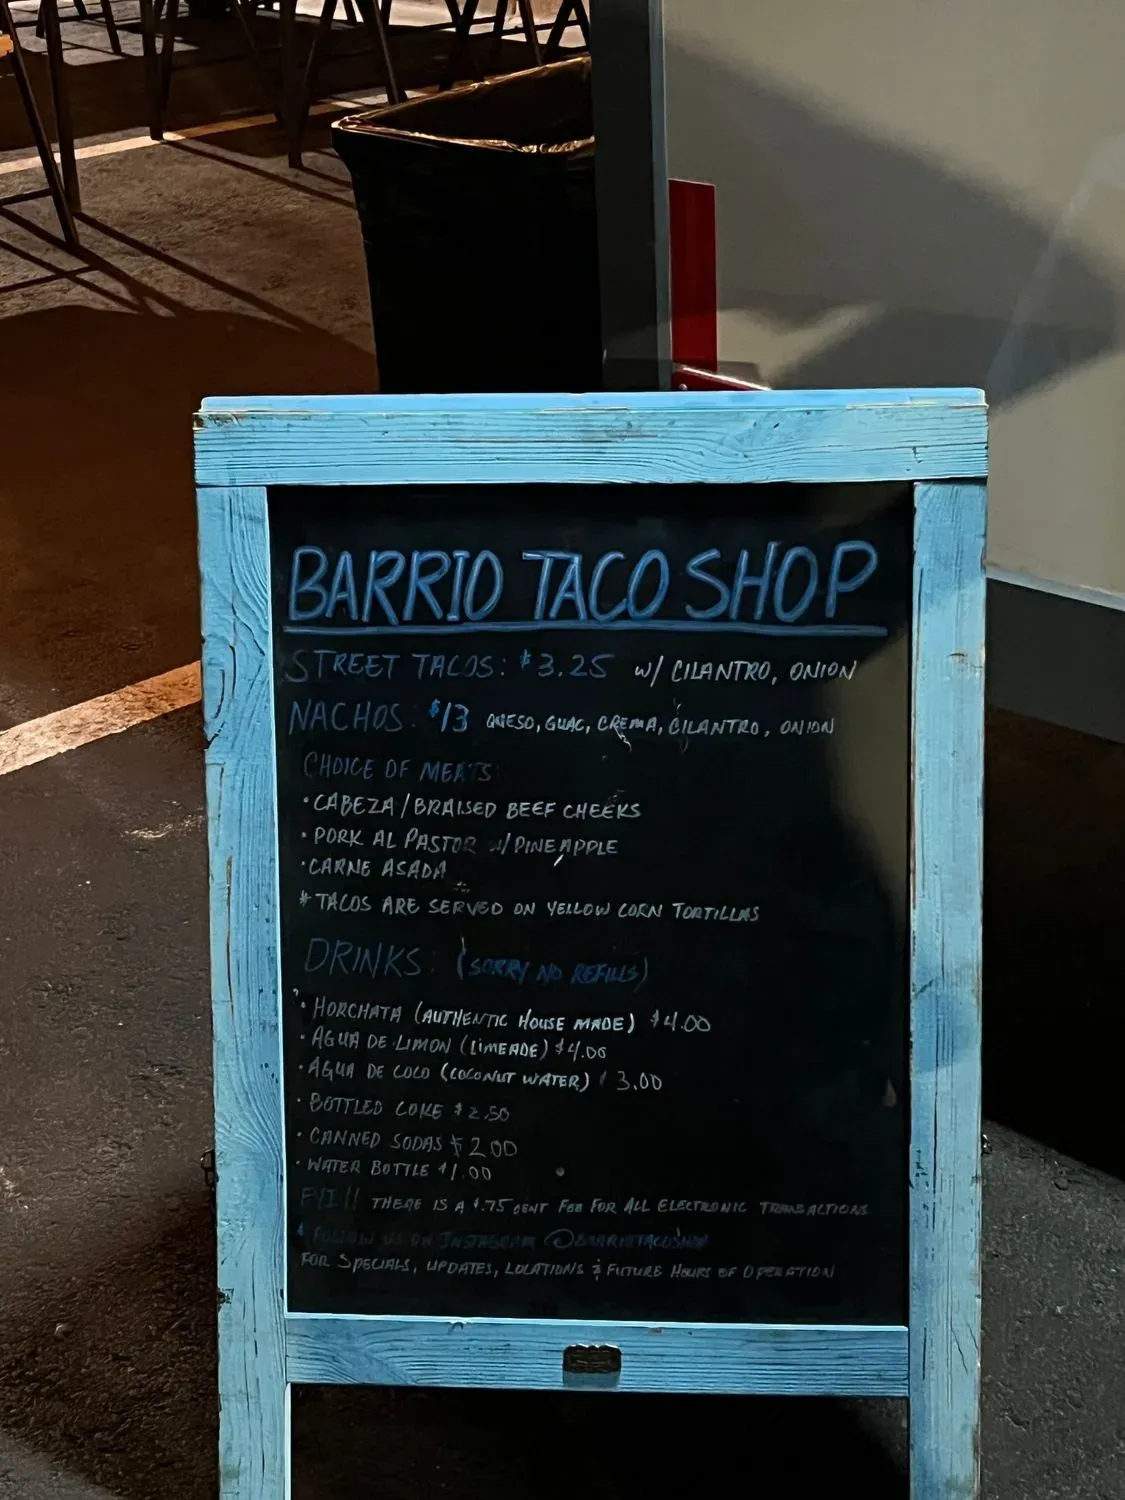 BARRIO TACO SHOP
STREET TACOS: $3.25 W/ CILANTRO, ONION
NACHOS: $13 QUESO, GUAC, CREMA, CILANTRO, ONION
CHOICE OF MEATS
• CABEZA / BRAISED BEEF CHEEKS
• PORK AL PASTOR W/ PINEAPPLE
• CARNE ASADA
* TACOS ARE SERVED ON YELLOW CORN TORTILLAS
DRINKS: (SORRY NO REFILLS)
• HORCHATA (AUTHENTIC HOUSE MADE) $4.00
• AGUA DE LIMON (LIMEADE) $4.00
• AGUA DE COCO (COCONUT WATER) $3.00
• BOTTLED COKE $2.50
• CANNED SODAS $2.00
• WATER BOTTLE $1.00
FYI!! THERE IS A $.75 CENT FEE FOR ALL ELECTRONIC TRANSACTIONS
* FOLLOW US ON INSTAGRAM @BARRIOTACOSHOP
FOR SPECIALS, UPDATES, LOCATIONS & FUTURE HOURS OF OPERATION